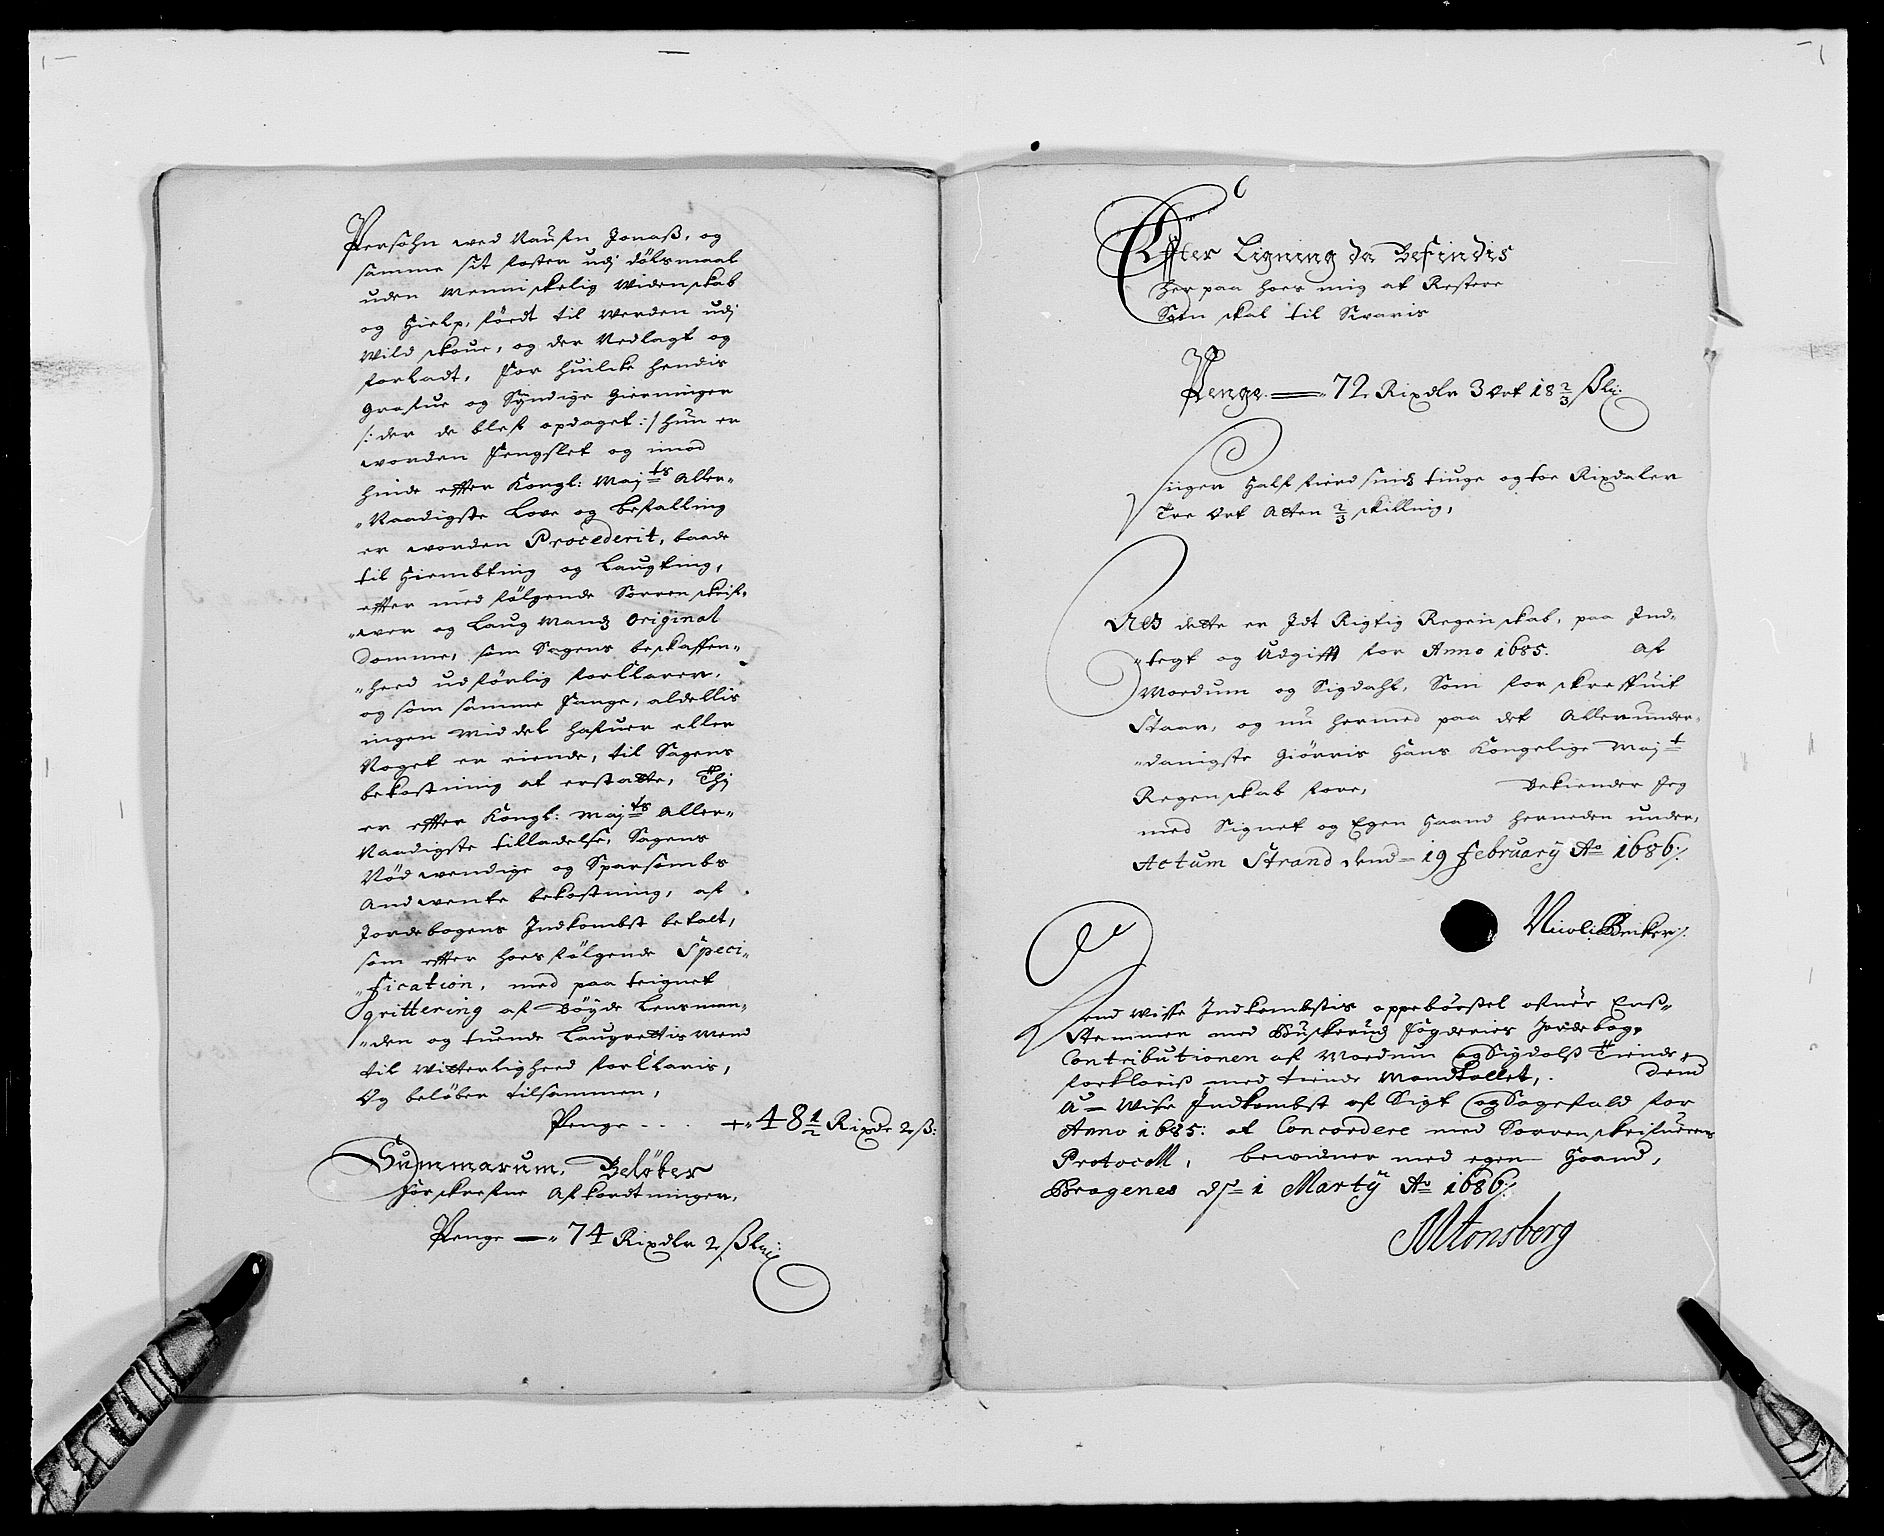 Persohn wed Naufn Jonaß, og
samme sit foster udj dølsmaal
uden Menniskelig Widenskab
og Hielp, født til Werden udj
Wild skoue, og der Nedlagt og
forladt, For huilcke hendis
Grofue og Syndige Gierninger
/: der de blef opdaget :/ hun er
worden Fengslet og imod
hinde effter Kongl: Maj:ts Aller-
Naadigste Love og befalling
er worden Procederit, baade
til Hiembting og Laugting,
effter med følgende Sorrenskrif-
wer og Laug Mandz Original
Domme, som Sagens beskaffen-
heed udførlig forklarer,
og som samme Fange, aldellis
ingen Middel hafuer eller
Noget er eiende, til Sagens
bekostning at erstatte, Thj
er effter Kongl: Maj:ts Aller-
Naadigste tilladelse, Sagens
Nødwendige og Sparsombs
Andwente bekostning, af
Jordebogens Indkombst betalt,
som effter hoesfølgende Speci-
fication, med paa teignet
qvittering af Bøyde Lensman-
den og tuende Laugrettis Mend
til Witterligheed forklaris,
Og beløber tilsammen,
Penge - - - 48 1/2 Rixdr 2 ß:
Summarum, Beløber
forskrefne Afkordtninger,
Penge — 74 Rixdlr 2 ßlr
Effter Ligning da Befindis
her paa hoes mig at Restere
Som skal til Svaris
Penge — 72 Rixdlr 3 Ort 18 2/3 ßlr:
Siiger Halffierdsindz tiuge og toe Rixdaler
Tre Ort Atten 2/3 skilling,
At dette er Idt Rigtig Regenskab, paa Ind-
tegt og Udgifft for Anno 1685. Af
Moedum og Sigdahl, Som forskreffuit
Staar, og nu hermed paa det Allerunder-
danigste Giørris Hans Kongelige Maj:t
Regenskab fore, Bekiender Jeg
med Signet og Egen Haand herneden under,
Actum Strand dend 19 February Ao 1686/.
Nicoli Becker/.
At
dend Wisse Indkombstis oppebørsel ofuer Enß-
Stemmer med Buskerudz Fogderies Jordebog,
Contributionen af Moedum og Sigdalß Tiende,
forklariß med tiende Mandtallet, dend
U-Wise Indkombst af Sigt og Sagefald for
Anno 1685: at Concordere med Sorrenskrifuerens
Protocoll, bewidner med egen Haand,
Bragenes d: 1 Marty Ao 1686/.
Mtonsberg